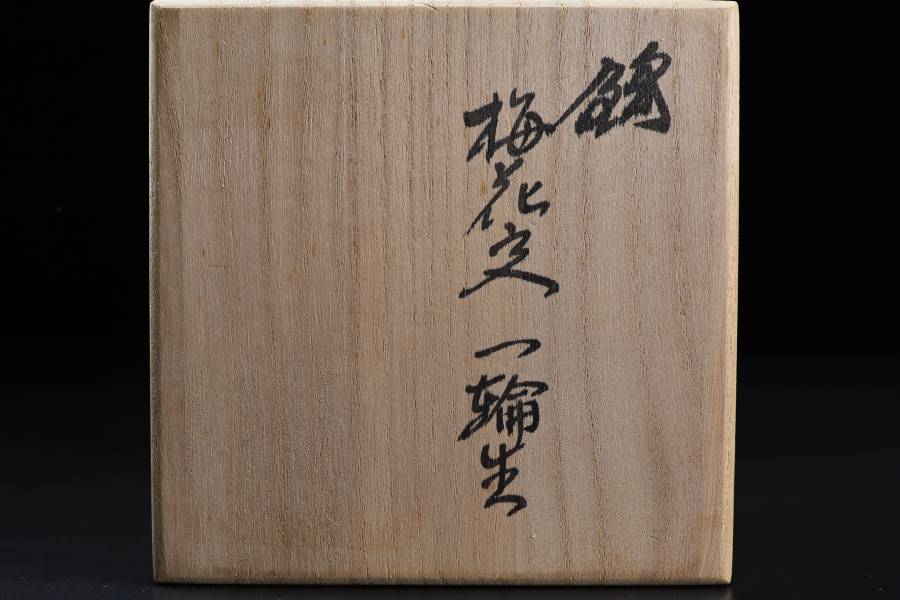 錦
梅花文 一輪生